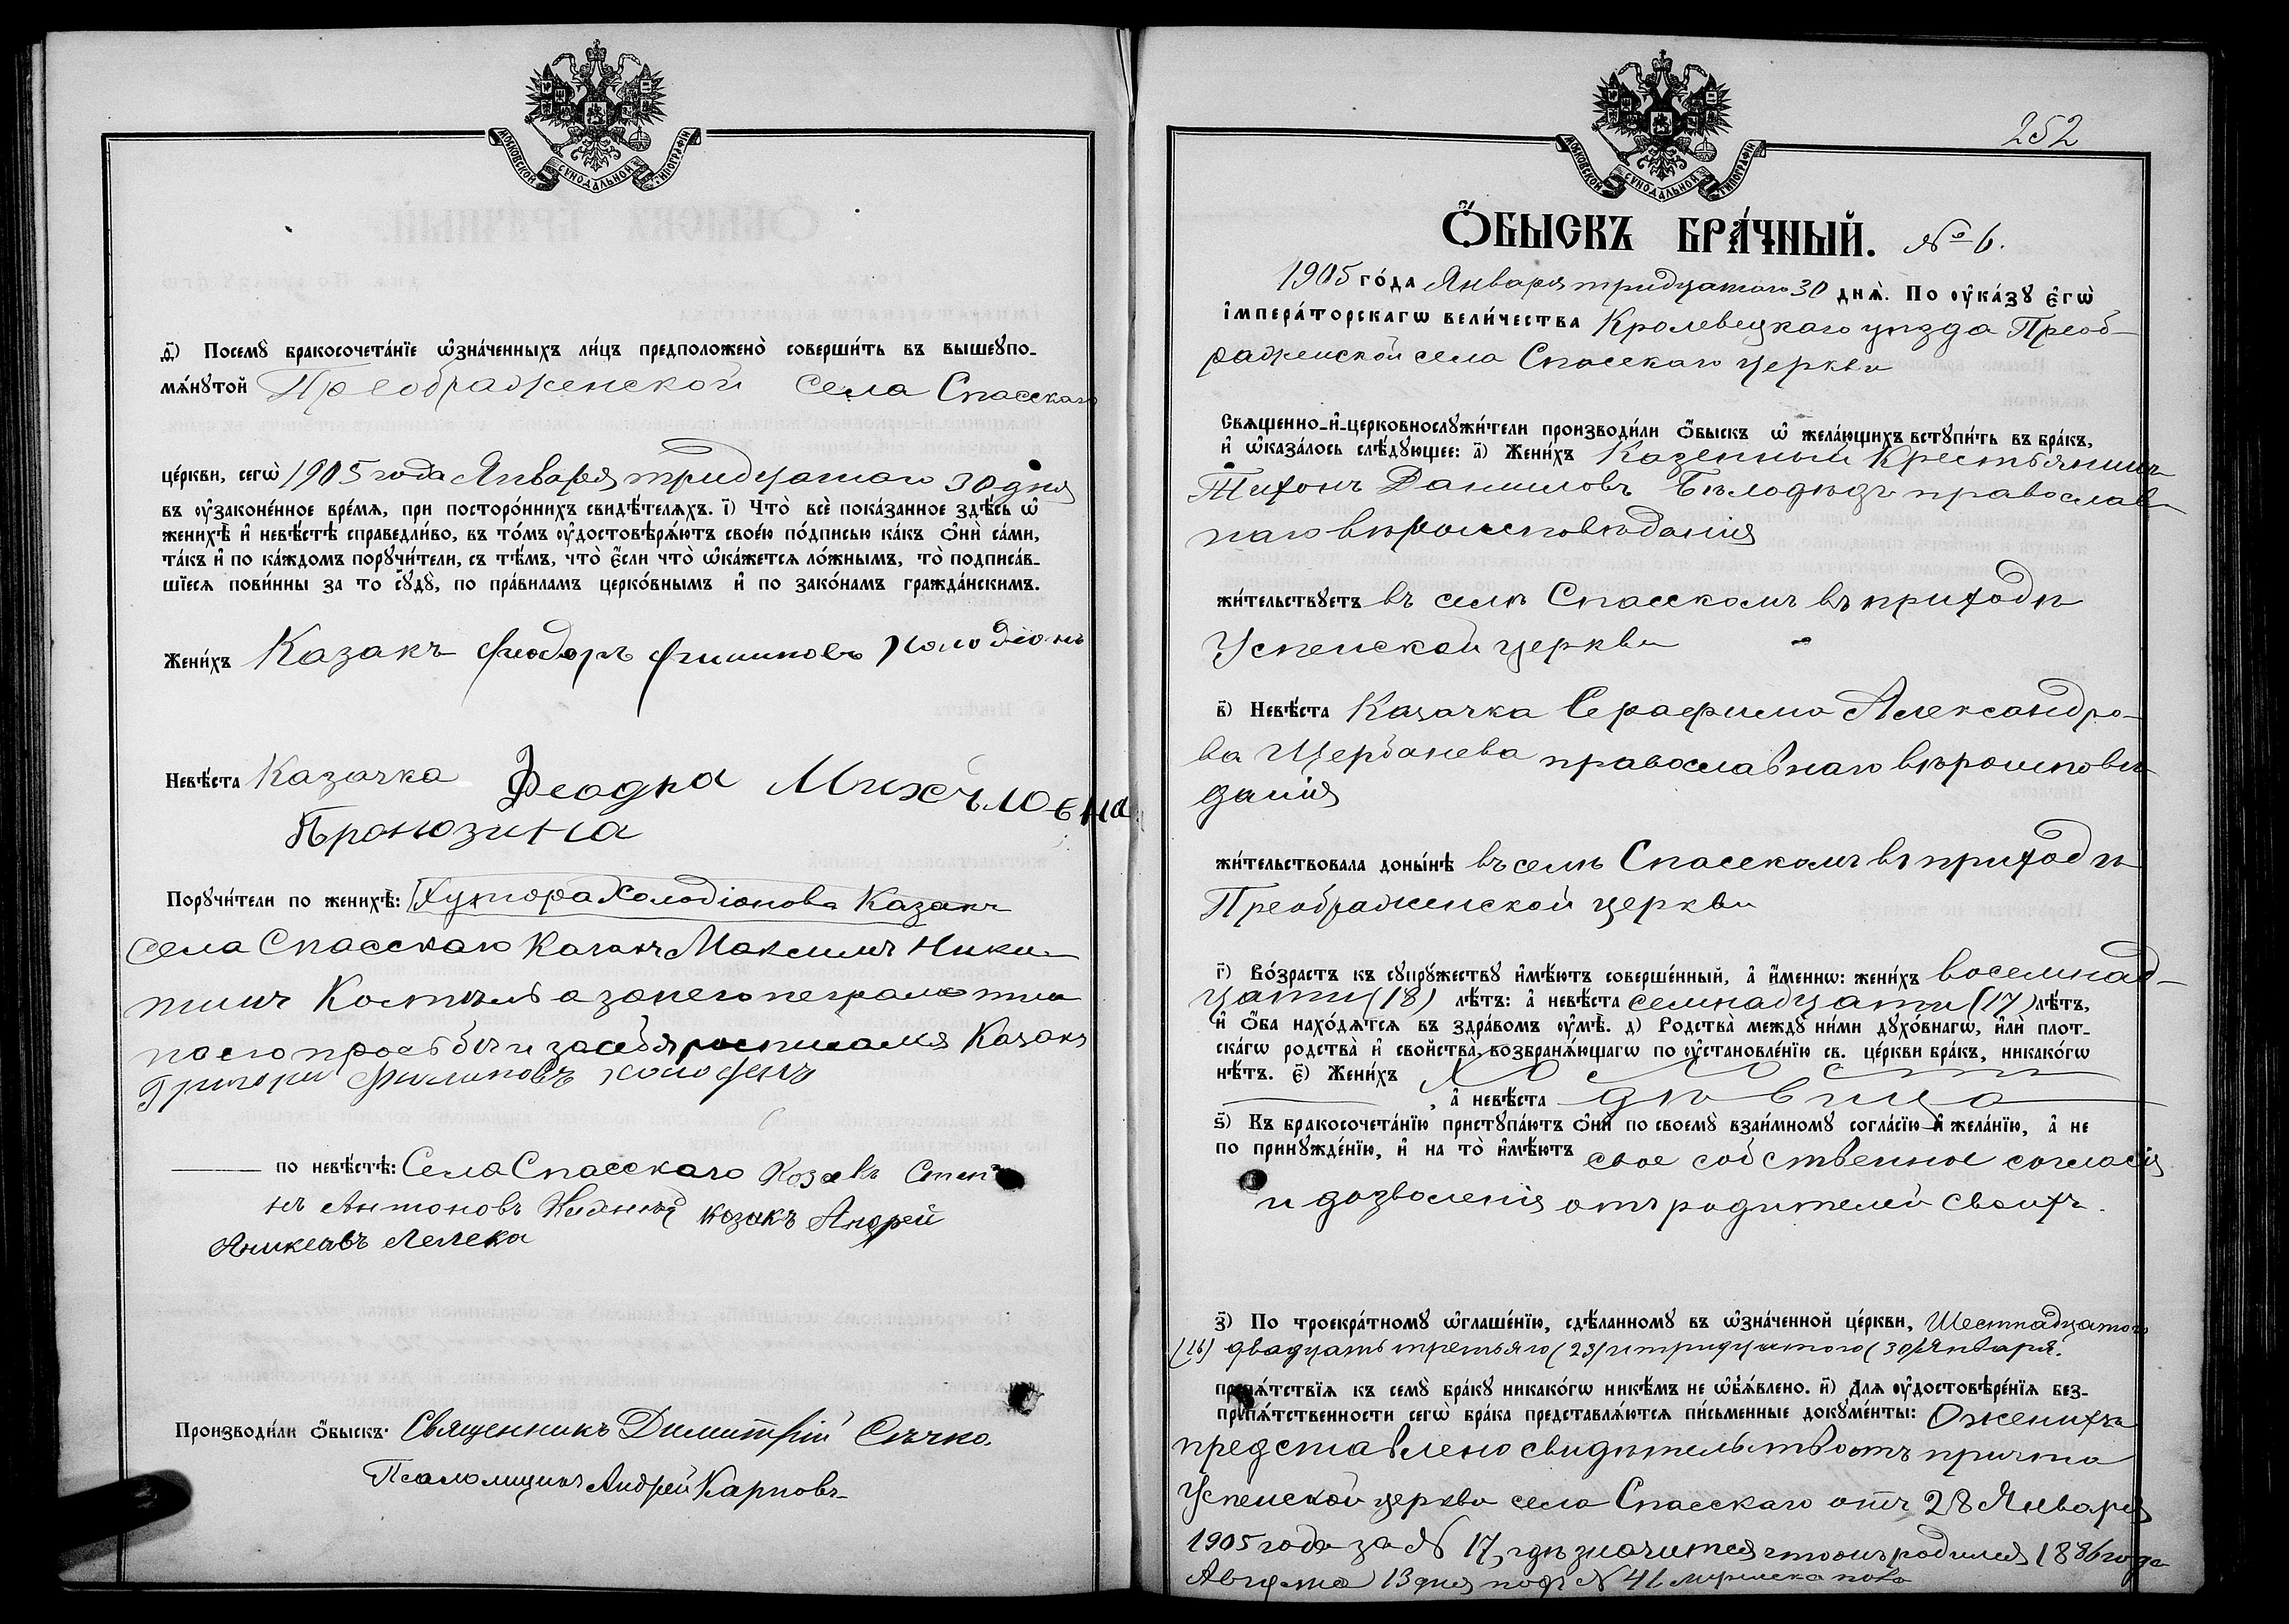 МОСКОВСКОЙ СУНОДАЛЬНОЙ ТИПОГРАФІИ
д҃і) Посемꙋ̀ бракосочета́нїе ѡ҆зна́ченныхъ ли́цъ предположено̀ соверши́ть въ вышеꙋпо-
мѧ́нꙋтой Преображенской села Спасскаго
це́ркви, сегѡ̀ 1905 года Января тридцатаго 30 дня
въ ᲂу҆законе́нное вре́мѧ, при посторо́ннихъ свидѣ́телѧхъ. і҃) Что̀ всѐ пока́занное здѣ́сь ѡ҆
женихѣ̀ и҆ невѣ́стѣ справедли́во, въ то́мъ ᲂу҆достовѣрѧ́ютъ свое́ю по́дписью ка́къ ѻ҆нѝ са́ми,
та́къ и҆ по ка́ждомъ порꙋчи́тели, съ тѣ́мъ, что̀ є҆́сли что̀ ѡ҆ка́жетсѧ ло́жнымъ, то̀ подписа́в-
шїесѧ пови́нны за то сꙋдꙋ̀, по пра́виламъ церко́внымъ и҆ по зако́намъ гражда́нскимъ.
Жени́хъ Казакъ Феодоръ Филиповъ Холодіонъ
Невѣ́ста Казачка Феодра
Порꙋчи́тели по женихѣ̀: Хутора Холодіонова Казакъ
Села Спасскаго Казакъ Максимъ Ники-
тинъ а за него неграмотна
по его прозьбы и за себя росписался Казакъ
Григори Филиповъ
по невѣ́стѣ: Села Спасскаго Козакъ Степа
нъ Антоновъ казакъ Андрей
Лелека
Производи́ли ѻ҆́быскъ: Священникъ Димитрій Сѣчко.
Псаломщикъ Андрей Карповъ
252
МОСКОВСКОЙ СУНОДАЛЬНОЙ ТИПОГРАФІИ
Ѻ҆́БЫСКЪ БРА́ЧНЫЙ. № 6.
1905 го́да Января тридцатаго 30 днѧ̀. По ᲂу҆ка́зꙋ є҆гѡ̀
і҆мпера́торскагѡ вели́чества Кролевецкаго уѣзда Преоб-
раженской села Спасскаго церкви
Свѧщенно-и҆-церковнослꙋжи́тели производи́ли ѻ҆́быскъ ѡ҆ жела́ющихъ встꙋпи́ть въ бра́къ,
и҆ ѡ҆каза́лось слѣ́дꙋющее: а҃) Жени́хъ Казенный Крестьянинъ
Тихонъ Даниловъ Бѣлодѣдъ православ-
наго вѣроисповѣданія
жи́тельствꙋетъ въ селѣ Спасскомъ въ приходѣ
Успенской церкви
в҃) Невѣ́ста Казачка Серафима Александро-
ва Щербанева православнаго вѣроисповѣ-
данія
жи́тельствовала доны́нѣ въ селѣ Спасскомъ въ приходѣ
Преображенской церкви
г҃) Во́зрастъ къ сꙋпрꙋ́жествꙋ и҆мѣ́ютъ соверше́нный, а҆ и҆́меннѡ: жени́хъ восемнад-
цати (18) лѣ́тъ: а҆ невѣ́ста семнадцати (17) лѣ́тъ,
и҆ ѻ҆́ба нахо́дѧтсѧ въ здра́вомъ ᲂу҆мѣ̀. д҃) Родства̀ междꙋ̀ ни́ми дꙋхо́внагѡ, и҆лѝ плот-
ска́гѡ родства̀ и҆ сво́йства̀, возбранѧ́ющагѡ по ᲂу҆становле́нїю св. це́ркви бра́къ, никако́гѡ
нѣ́тъ. є҃) Жени́хъ холостъ
, а҆ невѣ́ста дѣвица
ѕ҃) Къ бракосочета́нїю пристꙋпа́ютъ ѻ҆нѝ по своемꙋ̀ взаи́мномꙋ согла́сїю и҆ жела́нїю, а҆ не
по принꙋжде́нїю, и҆ на то̀ и҆мѣ́ютъ свое собственное согласія
и дозволенія отъ родителей своихъ.
з҃) По троекра́тномꙋ ѡ҆глаше́нїю, сдѣ́ланномꙋ въ ѡ҆зна́ченной це́ркви, Шестнадцатаго
(16) двадцать третьяго (23) и тридцатого (30) Января.
препѧ́тствїѧ къ семꙋ̀ бра́кꙋ никако́гѡ никѣ́мъ не ѡ҆б̾ѧ́влено. и҃) Длѧ ᲂу҆достовѣре́нїѧ без-
препѧ́тственности сегѡ̀ бра́ка представлѧ́ютсѧ пи́сьменные докꙋме́нты: О женихѣ
представлено свидѣтельство отъ причта
Успенской церкви села Спасскаго отъ 28 Января
1905 года за № 17, гдѣ значится что онъ родился 1886 года
Августа 13 дня подъ № 41